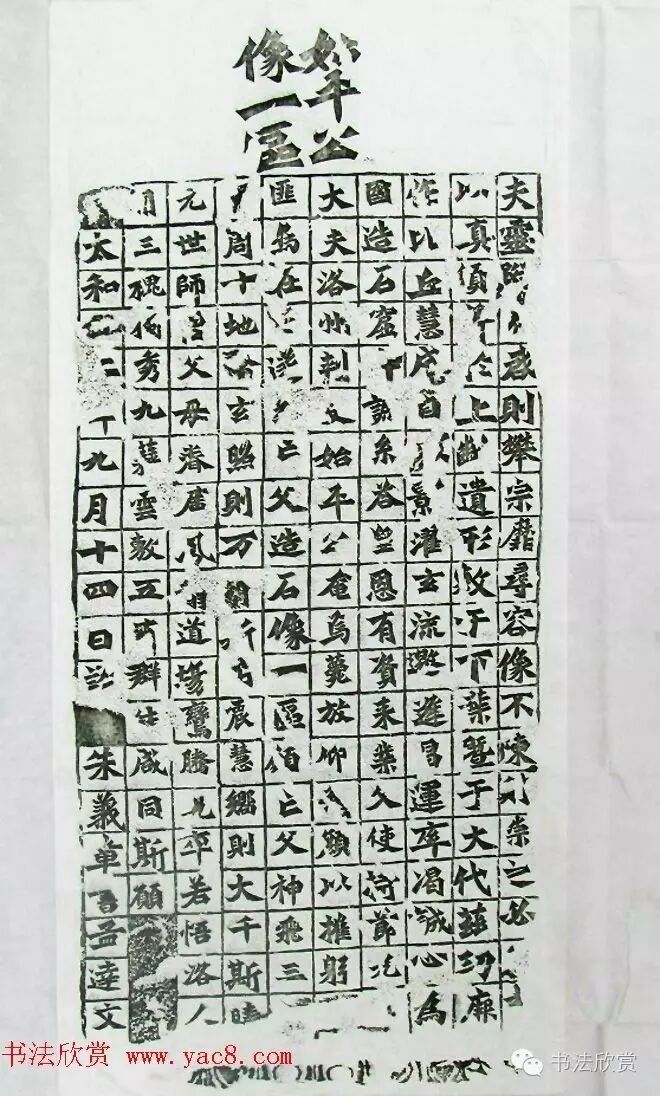 始平公
像一區
夫靈則攀宗靡尋容像不陳崇之必
以真於上齡遺形敷于下葉暨于大代茲功厥
作比丘慧成自景濯玄流邀逢昌運率竭誠心為
國造石窟系答皇恩有資來業父使持節光
大夫洛州刺史始平公奄焉薨放仰顏以摧躬
匪烏在亡父造石像一區願亡父神飛三
周十地玄照則万震慧嚮則大千斯曉
元世師父母眷屬鳳道場鸞騰兜率若悟洛人
三槐獨秀九蕀雲敷五群生咸同斯願
太和年九月十四日訖朱義章書孟達文
书法欣赏 www.yac8.com
书法欣赏